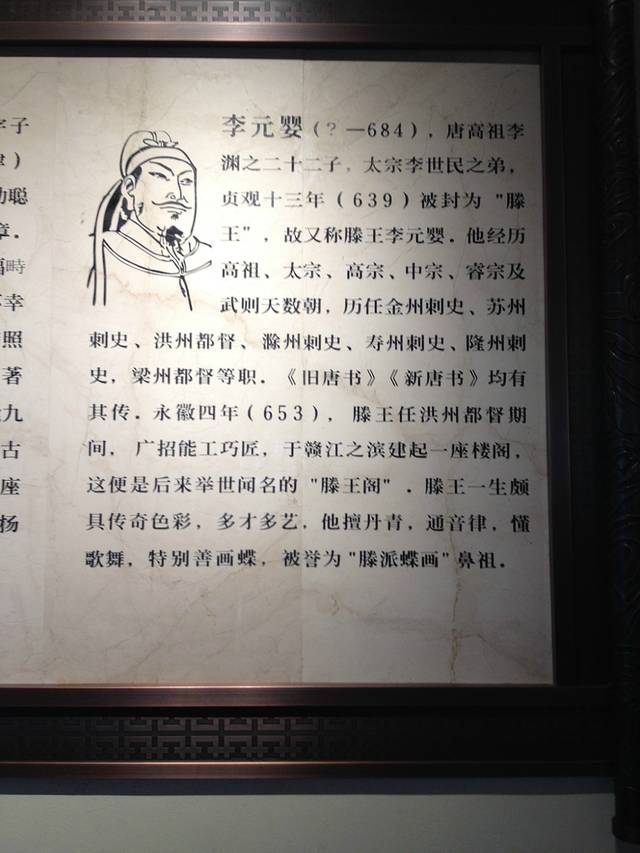 字子
聪
章．
幅畤
幸
照
著
九
古
座
扬
李元婴（？—684），唐高祖李
渊之二十二子，太宗李世民之弟，
贞观十三年（639）被封为"滕
王"，故又称滕王李元婴．他经历
高祖、太宗、高宗、中宗、睿宗及
武则天数朝，历任金州刺史、苏州
刺史、洪州都督、滁州刺史、寿州刺史、隆州刺
史，梁州都督等职．《旧唐书》《新唐书》均有
其传．永徽四年（653），滕王任洪州都督期
间，广招能工巧匠，于赣江之滨建起一座楼阁，
这便是后来举世闻名的"滕王阁"．滕王一生颇
具传奇色彩，多才多艺，他擅丹青，通音律，懂
歌舞，特别善画蝶，被誉为"滕派蝶画"鼻祖．